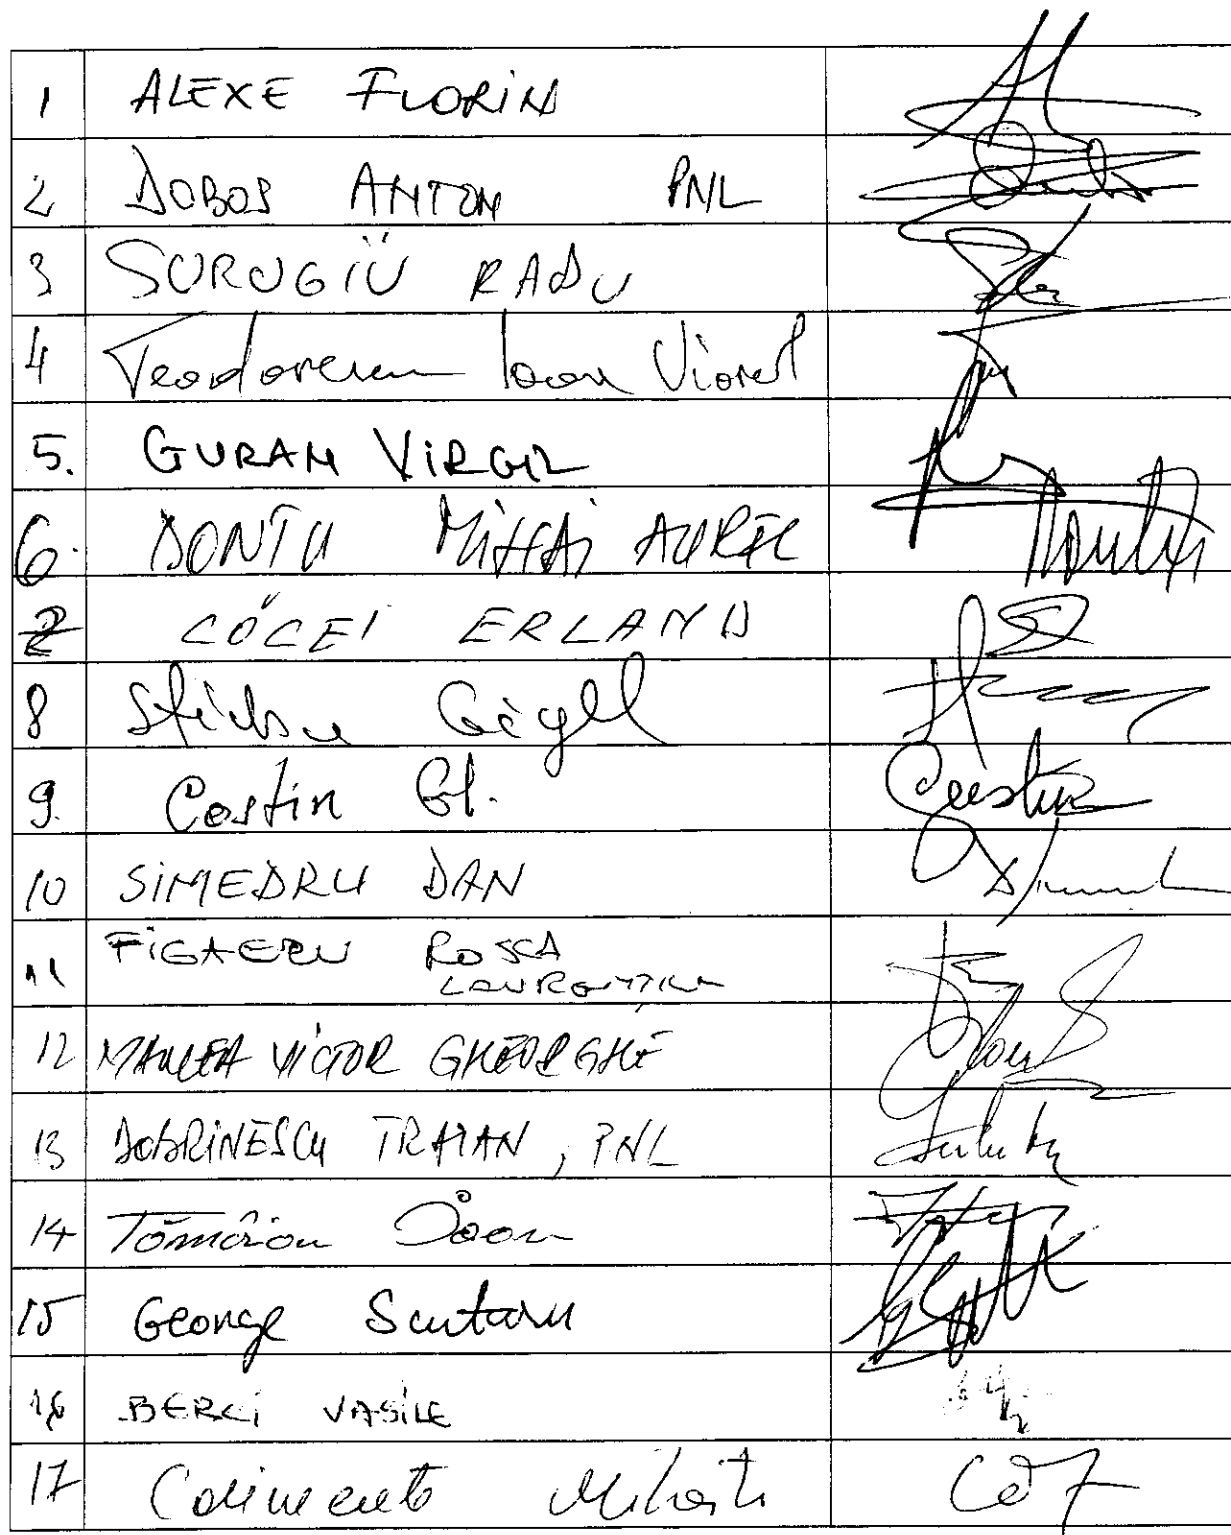 1 ALEXE FLORIN
2 DOBOS ANTON PNL
3 SURUGIU RADU
4 Teodorescu Ioan Viorel
5. GURAN VIRGIL
6. DONTU MIHAI AUREL
7 CÓCEI ERLAND
8 Știrbu Gigel
9. Costin Gh.
10 SIMEDRU DAN
11 ROȘCA
12 MANEA VICTOR GHEORGHE
13 DOBRINESCU TRAIAN, PNL
14 Tămâian Ioan
15 George Scutaru
16 BERCI VASILE
17